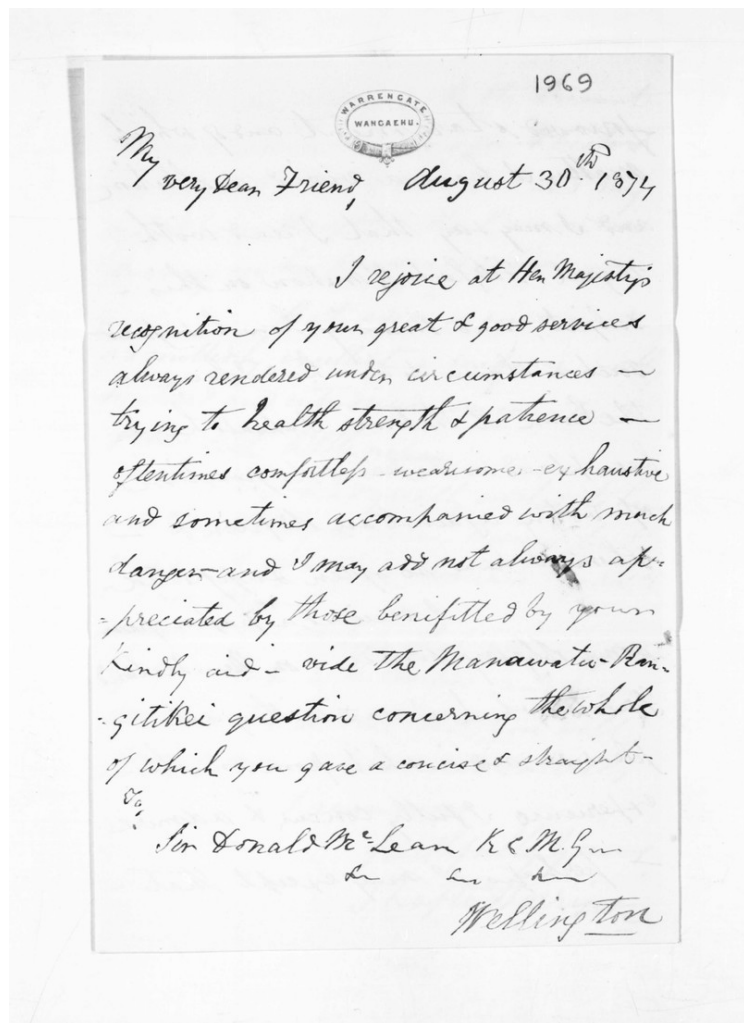 1969
WARRENGATE
WANGAEHU.
My
very Dear Friend, August 30th. 1874
I rejoice at Her Majesty's
recognition of your great & good services
always rendered under circumstances —
trying to health strength & patience —
oftentimes comfortless - wearisome - exhaustive
and sometimes accompanied with much
danger - and I may add not always ap=
=preciated by those benifitted by your
kindly aid - vide the Manawatu - Ran=
=gitikei question concerning the whole
of which you gave a concise & straight-
To,
Sir Donald McLean K C M. G
&c &c &c
Wellington